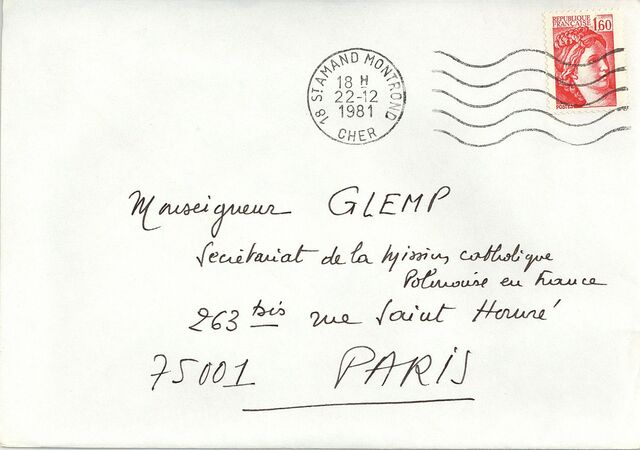 REPUBLIQUE
FRANCAISE 1,60
POSTES
18 ST AMAND MONTROND
18 H
22-12
1981
CHER
Monseigneur GLEMP
Secrétariat de la Mission catholique
Polonaise en France
263 bis rue Saint Honoré
75001 PARIS